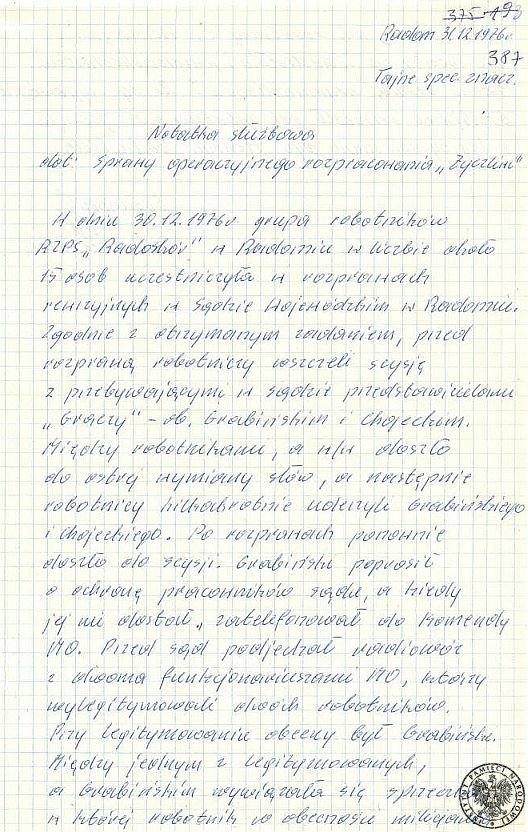 375-198
Radom 31.12.1976r
387
Tajne spec. znacz.
Notatka służbowa
dot. Sprawy operacyjnego rozpracowania „Życzliwi"
W dniu 30.12.1976r grupa robotników
RZPS „Radoskór" w Radomiu w liczbie około
15 osób uczestniczyła w rozprawach
rewizyjnych w Sądzie Wojewódzkim w Radomiu.
Zgodnie z otrzymanym zadaniem, przed
rozprawą robotnicy wszczęli scysję
z przebywającymi w sądzie przedstawicielami
„Graczy" – ob. Grabińskim i Chojeckim.
Między robotnikami, a w/w doszło
do ostrej wymiany słów, a następnie
robotnicy kilkakrotnie uderzyli Grabińskiego
i Chojeckiego. Po rozprawach ponownie
doszło do scysji. Grabiński poprosił
o ochronę pracowników sądu, a kiedy
jej nie dostał, zatelefonował do Komendy
MO. Przed sąd podjechał radiowóz
z dwoma funkcjonariuszami MO, którzy
wylegitymowali dwóch robotników.
Przy legitymowaniu obecny był Grabiński.
Między jednym z legitymowanych,
a Grabińskim wywiązała się sprzeczka
w której robotnik w obecności
INSTYTUT PAMIĘCI NARODOWEJ